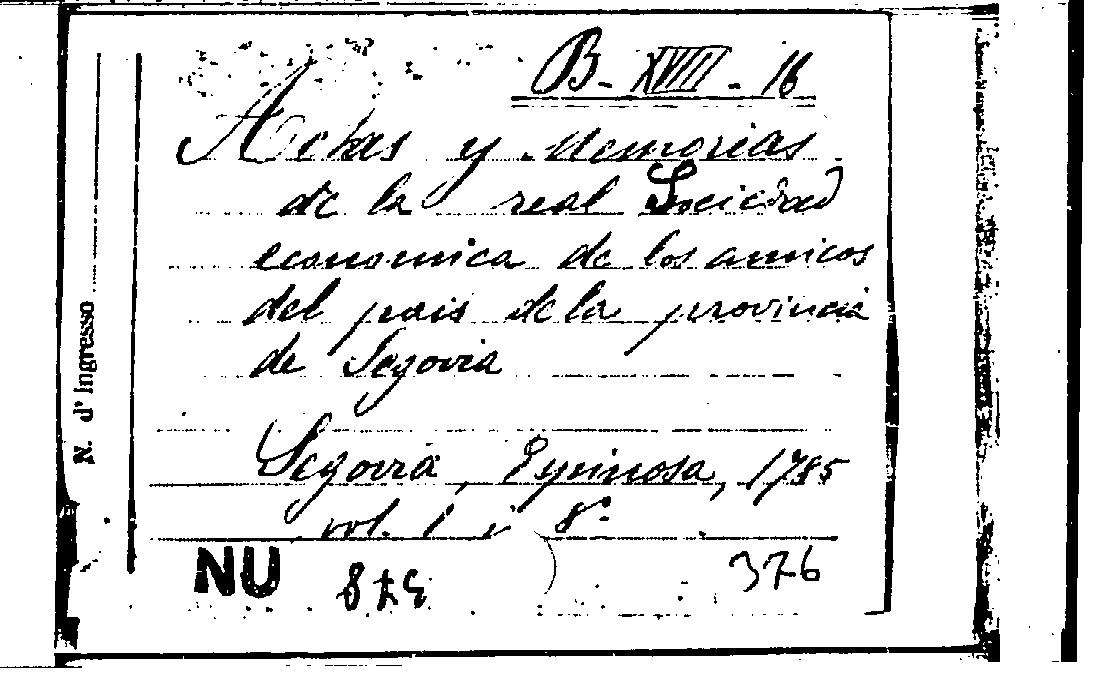 B - XVIII - 16
Actas y Memorias
de la real Sociedad
economica de los amicos
del pais de la provincia
de Segovia
Segovia, Espinosa, 1785
vol. 1 i 8º
NU
376
N. d'Ingresso